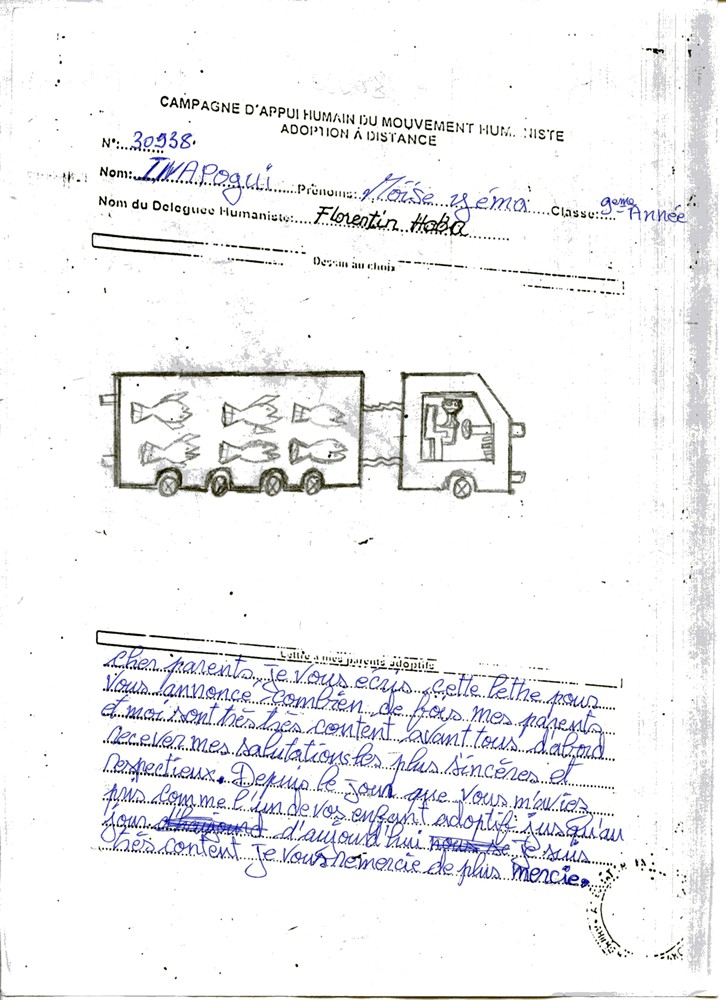 CAMPAGNE D'APPUI HUMAIN DU MOUVEMENT HUMANISTE
ADOPTION À DISTANCE
N°: 30938.
Nom: INAPogui Prénoms: Moïse yéma Classe: 9eme Année
Nom du Deleguee Humaniste: Florentin Haba
Dessin au choix
Lettre a mes parents adoptifs
cher parents je vous ecris cette lethe pour
Vous annonce combien de fois mes parents
et moi sont très très content avant tous d'abord
recever mes salutations les plus sincères et
respectieux. Depuis le jour que vous m'aviez
pris comme l'un de vos enfant adoptif jusqu'au
jour d'aujourd'hui je suis
très content je vous remercie de plus mercie.